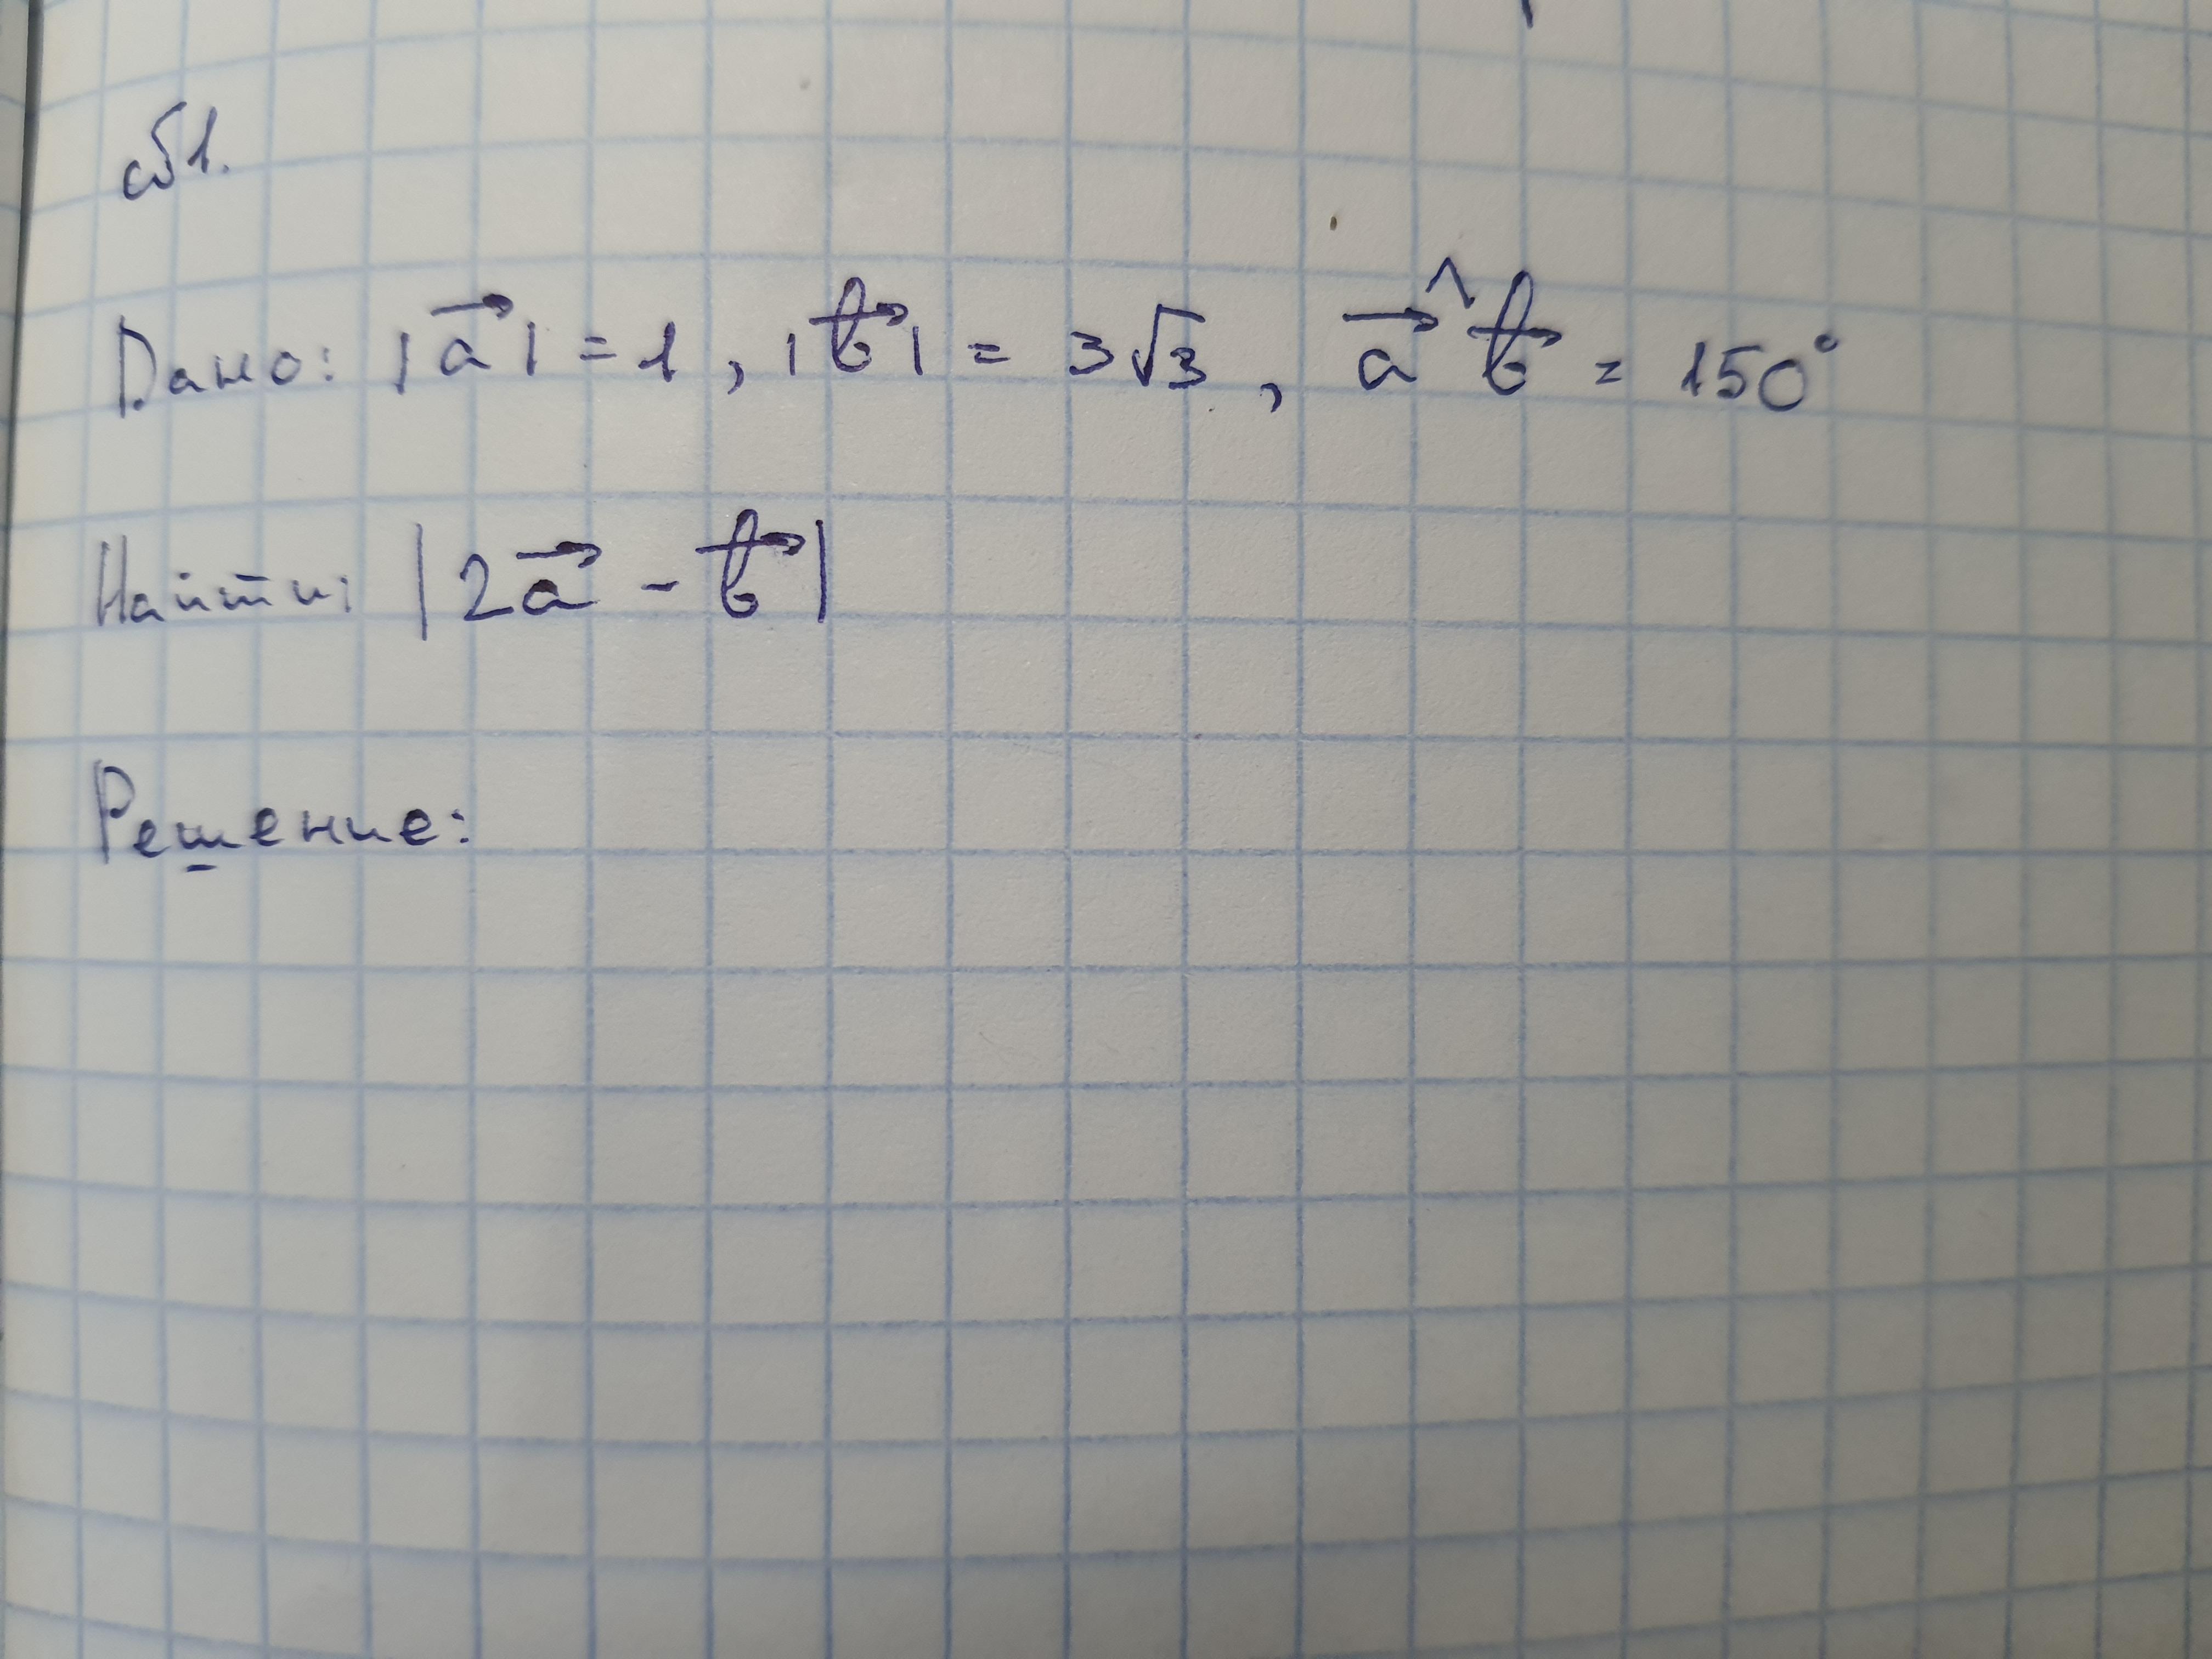 сб1.
Дано: |a⃗| = 1, |b⃗| = 3√3, a⃗^b⃗ = 150°
Найти: |2a⃗ - b⃗|
Решение: